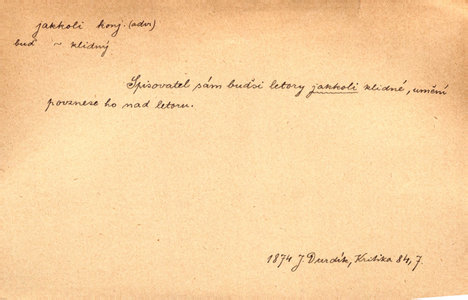 jakkoli konj. (adv)
buď ~ klidný
Spisovatel sám budsi letory jakkoli klidné, umění
povznese ho nad letoru.
1874 J. Durdík, Kritika 84, 7.